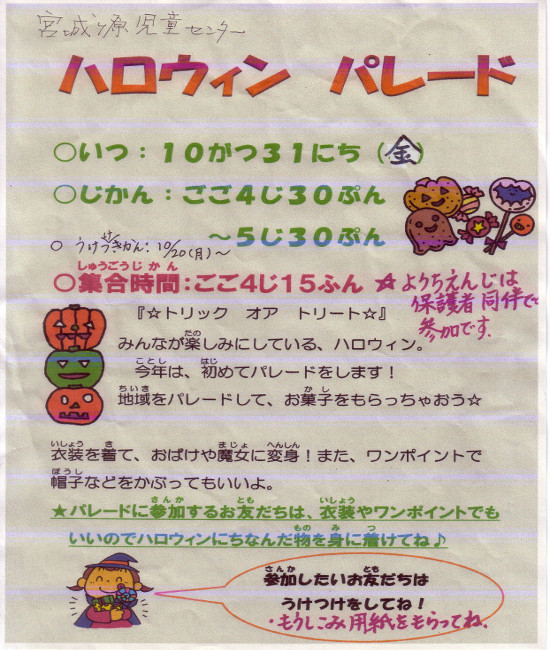 宮城ヶ原児童センター
ハロウィン パレード
○いつ：10がつ31にち（金）
○じかん：ごご4じ30ぷん
～5じ30ぷん
○ うけつけきかん：10/20(月)～
しゅうごうじかん
○集合時間：ごご4じ15ふん ☆ようちえんじは
保護者同伴で
参加です。
『☆トリック オア トリート☆』
たの
みんなが楽しみにしている、ハロウィン。
ことし はじ
今年は、初めてパレードをします！
ちいき かし
地域をパレードして、お菓子をもらっちゃおう☆
いしょう き まじょ へんしん
衣装を着て、おばけや魔女に変身！また、ワンポイントで
ぼうし
帽子などをかぶってもいいよ。
さんか とも いしょう
★パレードに参加するお友だちは、衣装やワンポイントでも
もの み つ
いいのでハロウィンにちなんだ物を身に着けてね♪
さんか とも
参加したいお友だちは
うけつけをしてね！
・もうしこみ用紙をもらってね。